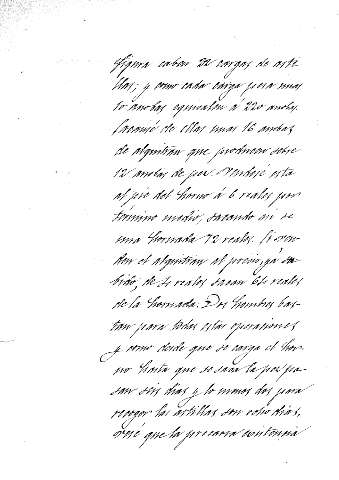 figura caben 22 cargas de asti-
llas; y como cada carga pesa unas
10 arrobas equivalen á 220 arrobas.
Sacanse de ellas unas 16 arrobas
de alquitrán que producen sobre
12 arrobas de pez. Vendese esta
al pié del horno á 6 reales por
término medio, sacando asi de
una hornada 72 reales. Si ven-
den el alquitran al precio, ya sa-
bido, de 4 reales sacan 64 reales
de la hornada. Dos hombres bas-
tan para todas estas operaciones
y como desde que se carga el hor-
no hasta que se saca la pez pa-
san séis dias y lo menos dos para
recoger las astillas son ocho dias,
vesé que la precaria existencia